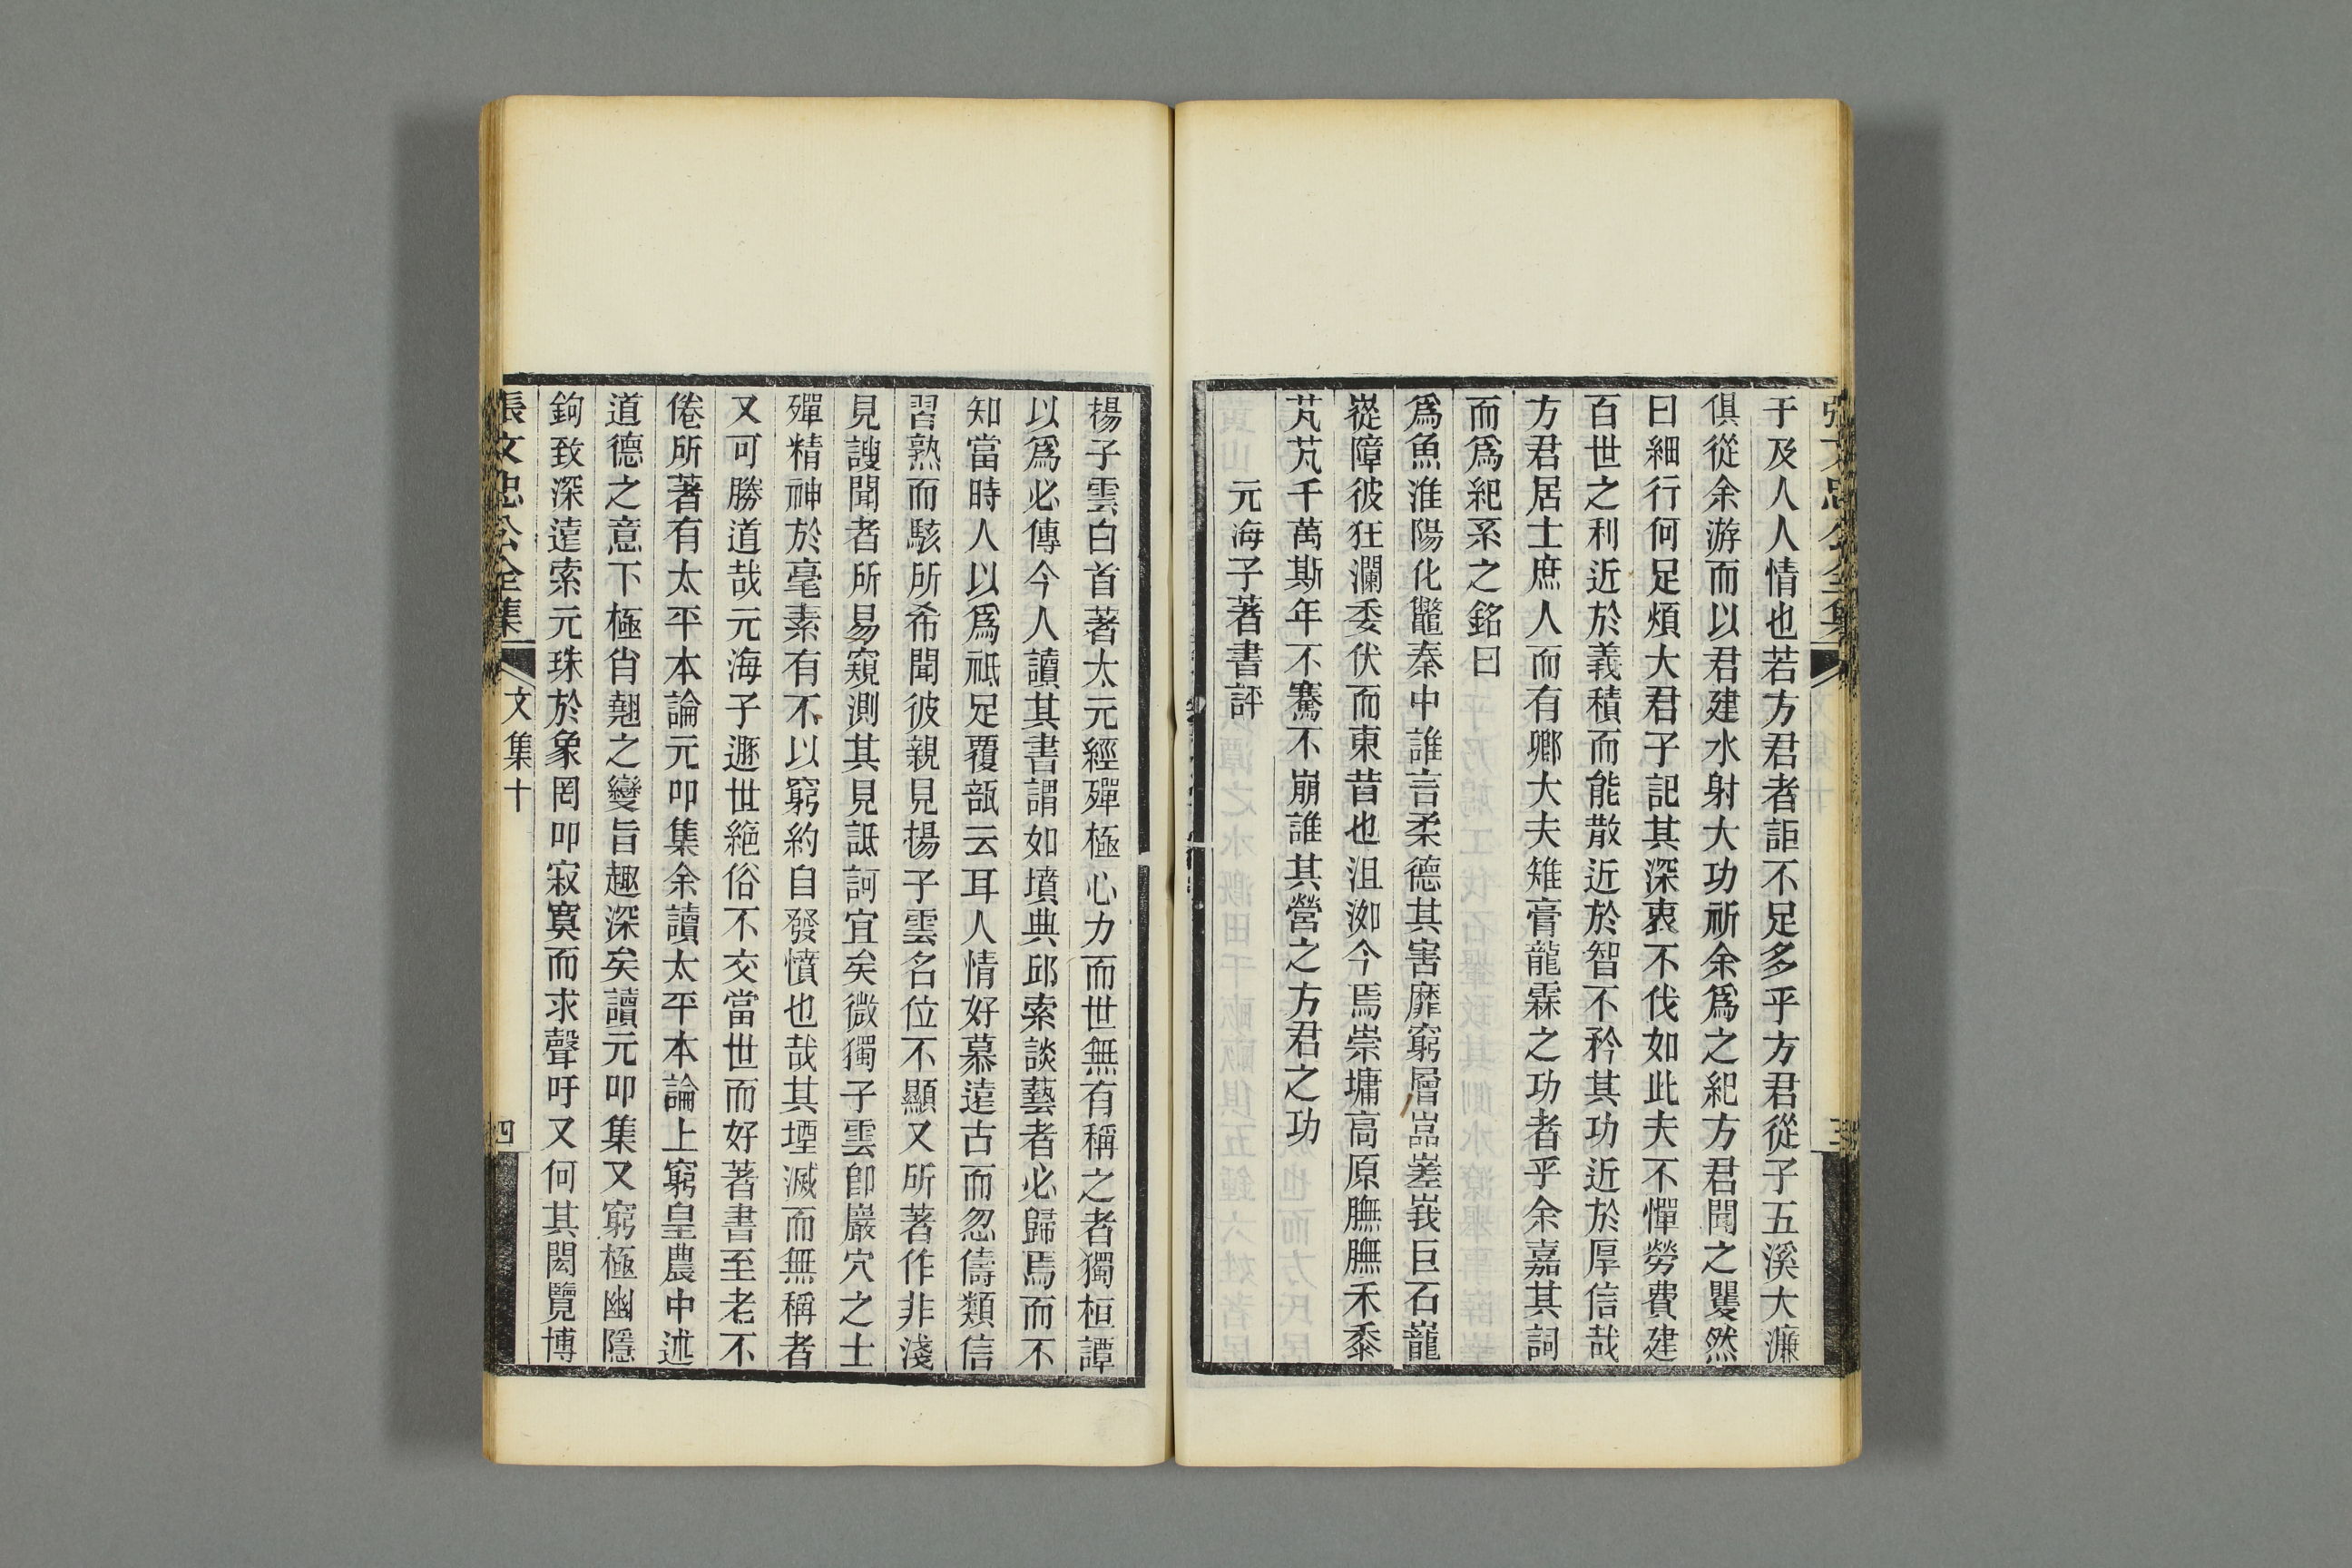 于及人人情也若方君者詎不足多乎方君從子五溪大濂
俱從余游而以君建水射大功祈余爲之紀方君聞之矍然
曰細行何足煩大君子記其深衷不伐如此夫不憚勞費建
百世之利近於義積而能散近於智不矜其功近於厚信哉
方君居士庶人而有鄉大夫雉膏龍霖之功者乎余嘉其詞
而爲紀系之銘曰
爲魚淮陽化鼈秦中誰言柔德其害靡窮層嵓嵳峩巨石巃
嵸障彼狂瀾委伏而東昔也沮洳今焉崇墉高原膴膴禾黍
芃芃千萬斯年不騫不崩誰其營之方君之功
元海子著書評
楊子雲白首著太元經殫極心力而世無有稱之者獨桓譚
以爲必傳今人讀其書謂如墳典邱索談藝者必歸焉而不
知當時人以爲祗足覆瓿云耳人情好慕遠古而忽儔類信
習熟而駭所希聞彼親見揚子雲名位不顯又所著作非淺
見謏聞者所易窺測其見詆訶宜矣微獨子雲卽巖穴之士
殫精神於毫素有不以窮約自發憤也哉其堙滅而無稱者
又可勝道哉元海子遯世絶俗不交當世而好著書至老不
倦所著有太平本論元叩集余讀太平本論上窮皇農中述
道德之意下極肖翹之變旨趣深矣讀元叩集又窮極幽隱
鉤致深遠索元珠於象罔叩寂寞而求聲吁又何其閎覽博
張文忠公全集
文集十
四